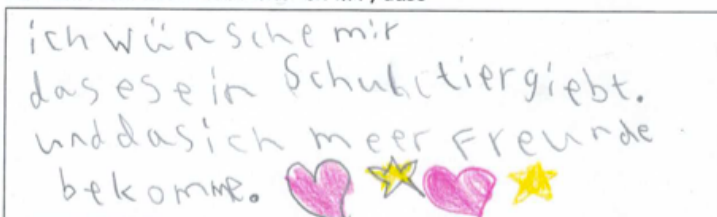 ich wünsche mir
das es ein Schultier giebt.
und das ich meer Freunde
bekomme.